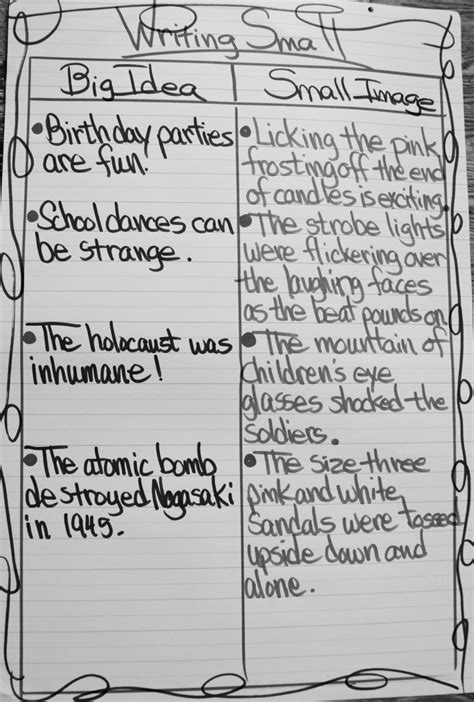 Writing Small
Big Idea
Small Image
•Birthday parties
are fun.
•Licking the pink
frosting off the end
of candles is exciting.
•School dances can
be strange.
•The strobe lights
were flickering over
the laughing faces
as the beat pounds on.
•The holocaust was
inhumane!
•The mountain of
Children's eye
glasses shocked the
soldiers.
•The atomic bomb
destroyed Nagasaki
in 1945.
•The size-three
pink and white
Sandals were tossed
upside down and
alone.